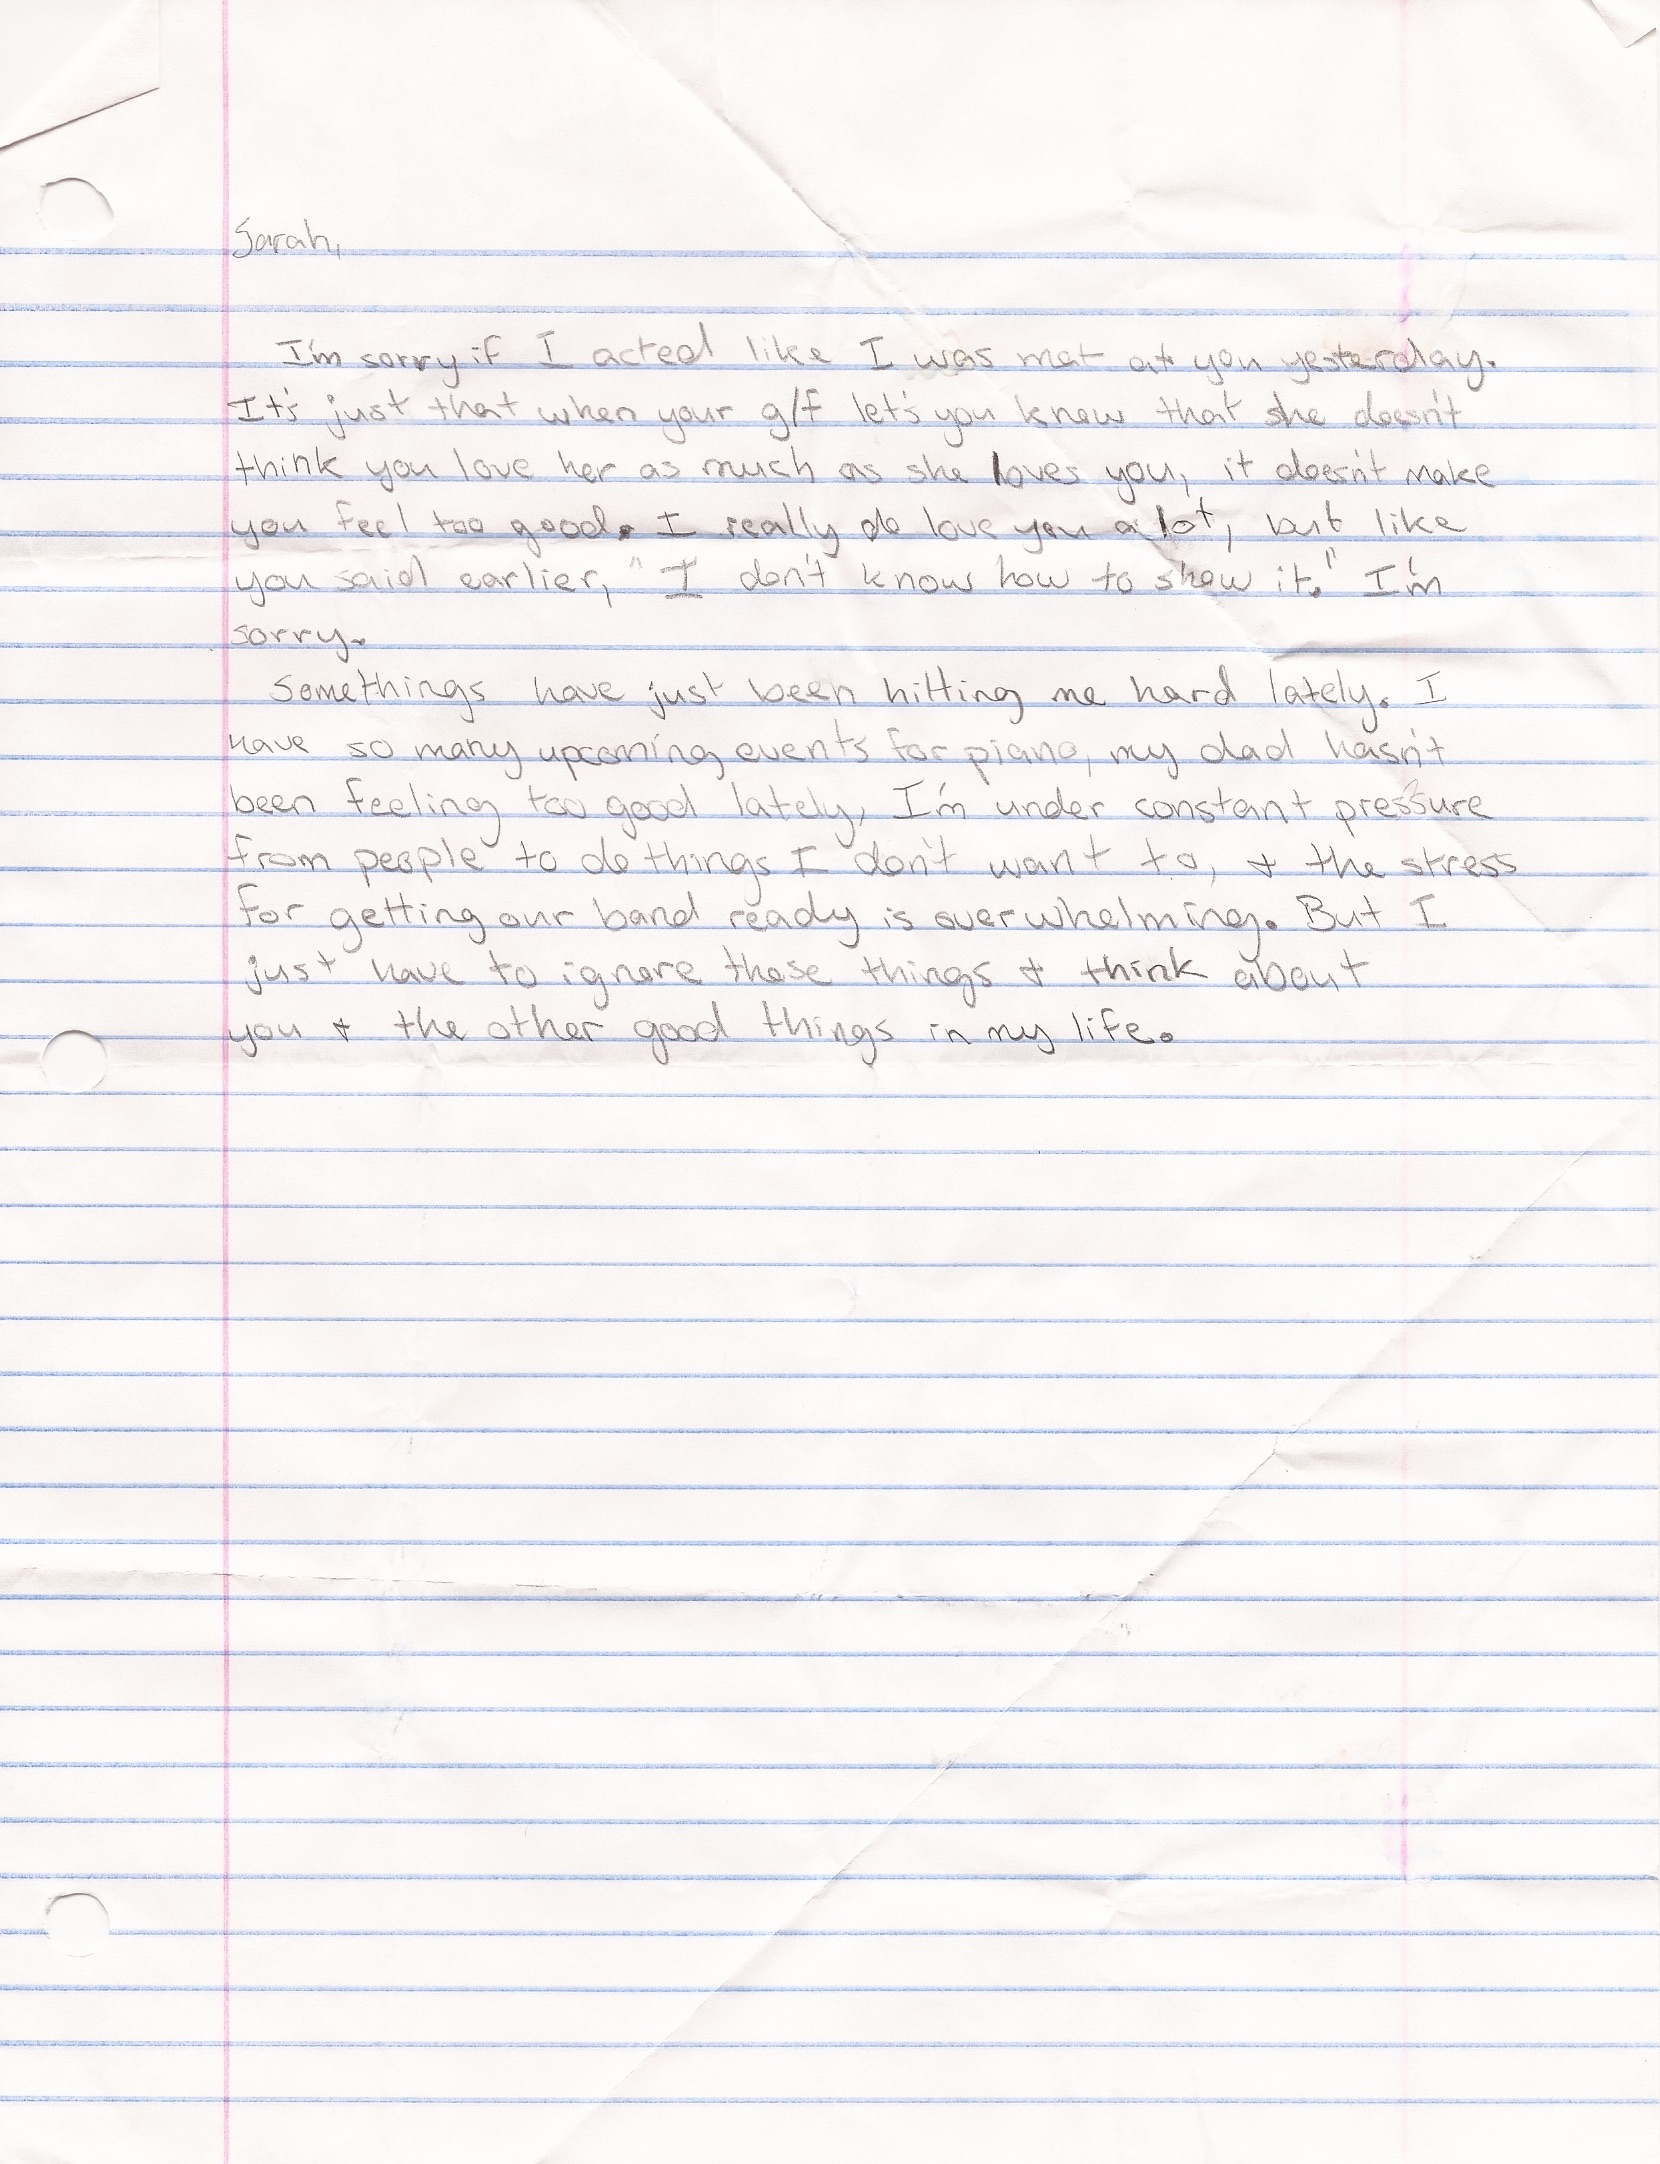 Sarah,
I'm sorry if I acted like I was mat at you yesterday.
It's just that when your g/f let's you know that she doesn't
think you love her as much as she loves you, it doesn't make
you feel too good. I really do love you a lot, but like
you said earlier, "I don't know how to show it." I'm
sorry.
Somethings have just been hitting me hard lately. I
have so many upcoming events for piano, my dad hasn't
been feeling too good lately, I'm under constant pressure
from people to do things I don't want to, & the stress
for getting our band ready is overwhelming. But I
just have to ignore those things & think about
you & the other good things in my life.